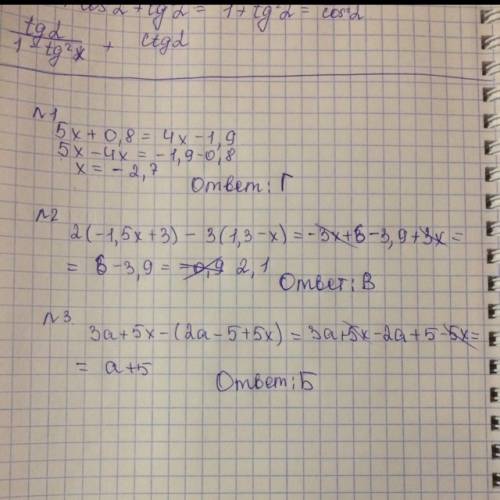 cos α + tg α = 1 + tg α = cos²α
tg α / 1 - tg²x + ctg α
№1
5x + 0,8 = 4x - 1,9
5x - 4x = -1,9 - 0,8
x = -2,7
Ответ: Г
№2
2(-1,5x+3) - 3(1,3-x) = -3x+6-3,9+3x =
= 6 - 3,9 = -0,9 2,1
Ответ: В
№3
3a + 5x - (2a - 5 + 5x) = 3a + 5x - 2a + 5 - 5x =
= a + 5
Ответ: Б